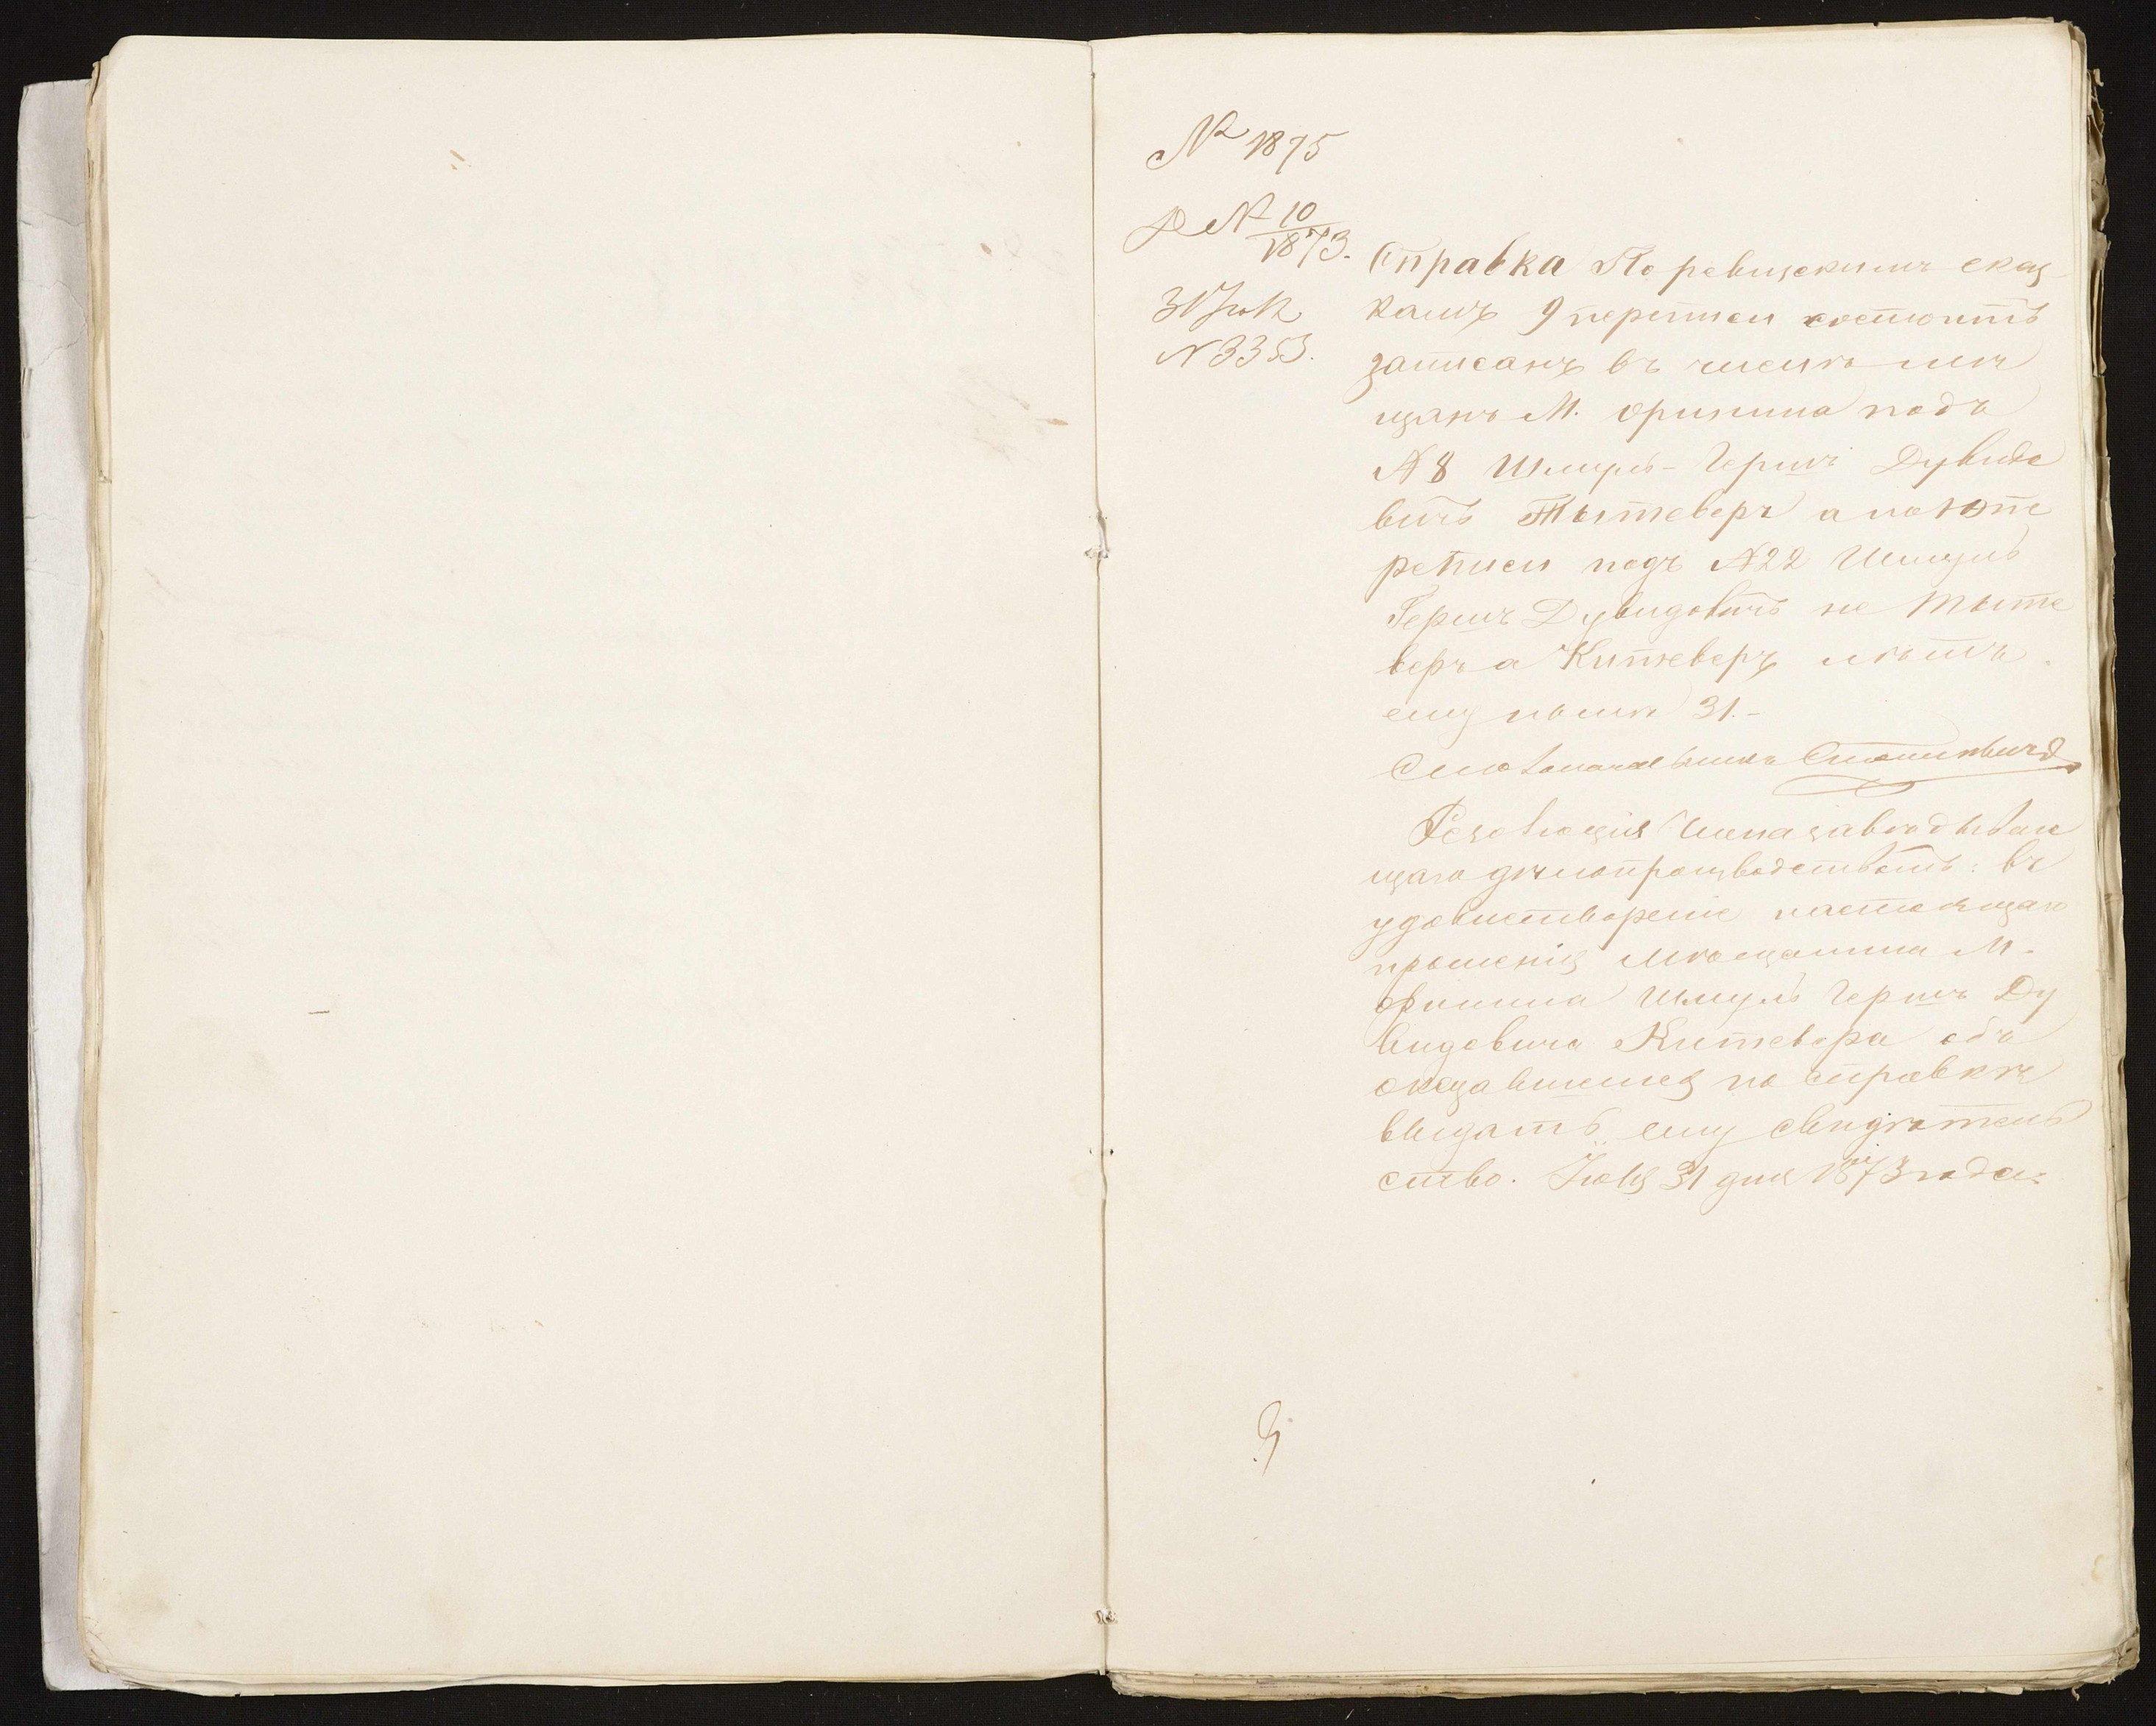 № 1875
Д № 10/1873.
31 Іюл
№ 3353.
Справка По ревизскимъ сказ
камъ 9 переписи состоитъ
записанъ въ числѣ мѣ
щанъ М. Оринина подъ
№ 8 Шмуль-Гершъ Дувидо
вичъ Тытеверъ а по 10 пе
реписи подъ № 22 Шмуль
Гершъ Дувидовичъ не Тыте
веръ а Китеверъ лѣтъ
ему нынѣ 31.-
Столоначальникъ
Резолюція Члена завѣдываю
щаго дѣлопроизводствомъ: въ
удовлетвореніе настоящаго
прошенія мѣщанина М.
Оринина Шмуль Гершъ Ду
видовича Китевера объ
оказавшемся по справкѣ
выдать ему свидѣтель
ство. Іюля 31 дня 1873 года.